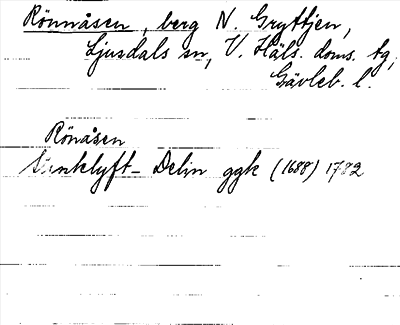 Rönnåsen, berg N. Gryttjen,
Ljusdals sn, V. Häls. doms. tg,
Gävleb. l.
Rönåsen
Lunklyft - Delin ggk (1688) 1782